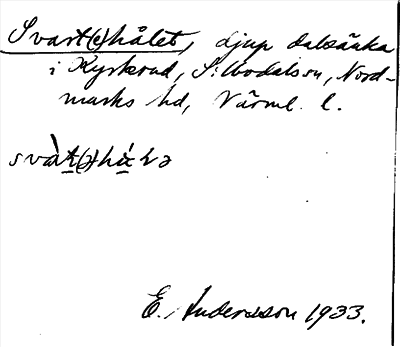 Svart(e)hålet, djup dalsänka
i Kyrkerud, Silbodals sn, Nord-
marks hd, Värml. l.
E. Andersson 1933.